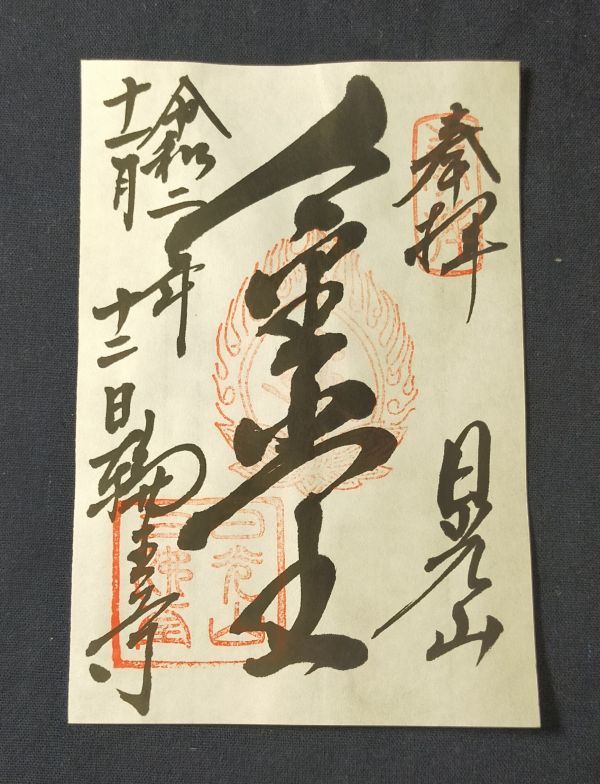 奉拝
日光山
金堂
令和二年
十一月十二日
輪王寺
日光山
三佛堂